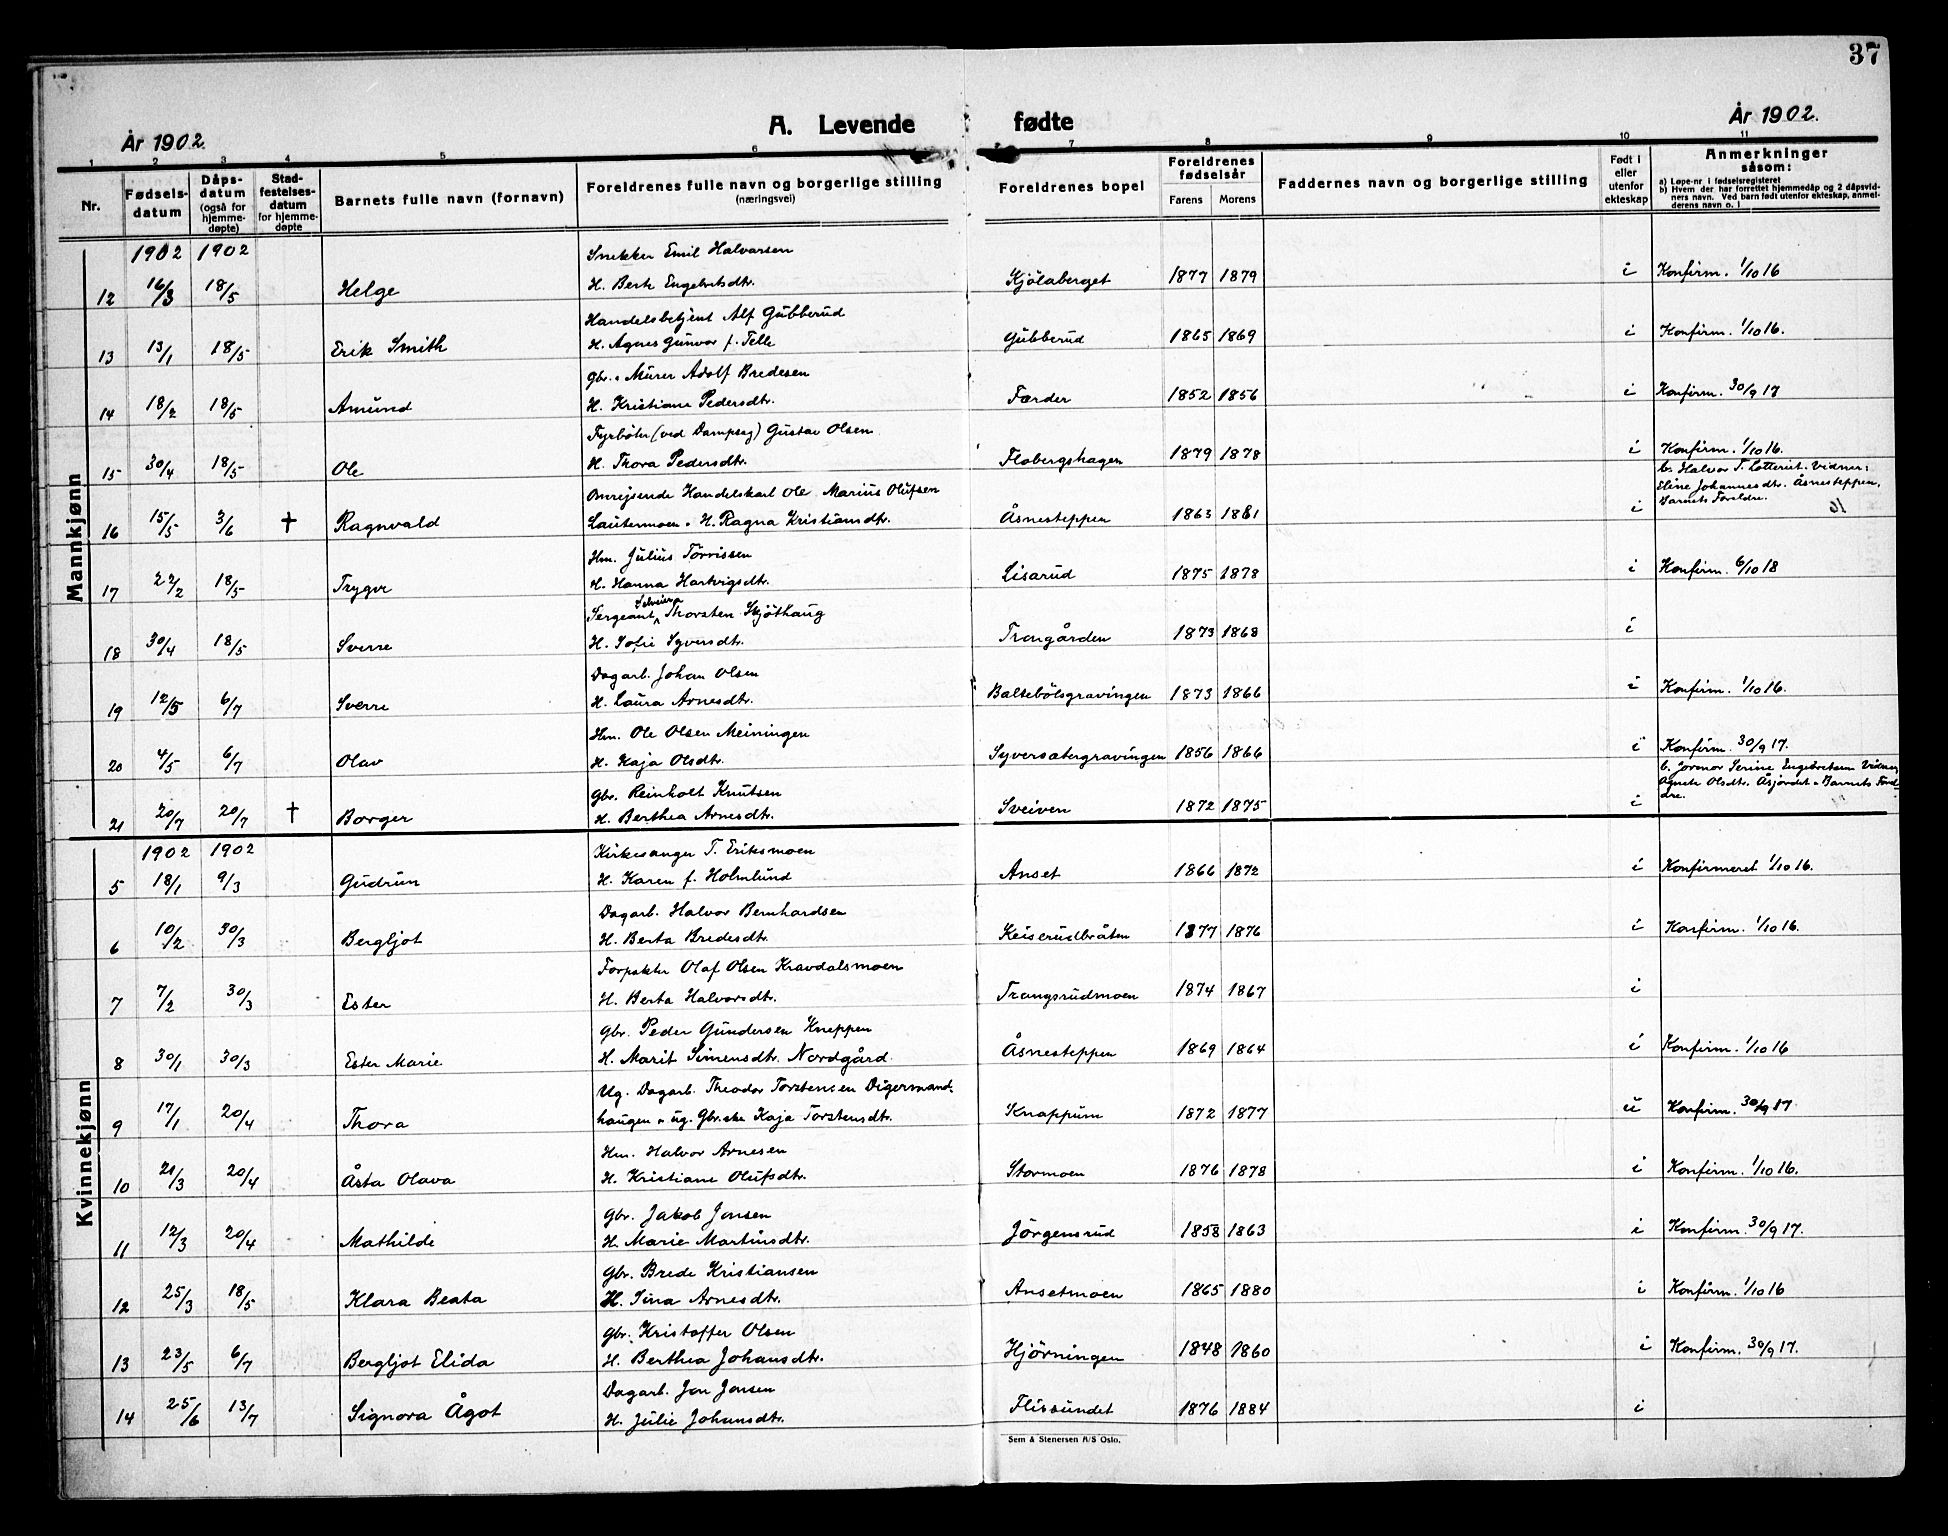 37
År 1902.
A. Levende fødte
År 1902.
1 2 3 4 5 6 7 8 9 10 11
Nr.
Fødsels-
datum
Dåps-
datum
(også for
hjemme-
døpte)
Stad-
festelses-
datum
for hjemme-
døpte
Barnets fulle navn (fornavn)
Foreldrenes fulle navn og borgerlige stilling
(næringsvei)
Foreldrenes bopel
Foreldrenes
fødselsår
Farens Morens
Faddernes navn og borgerlige stilling
Født i
eller
utenfor
ekteskap
Anmerkninger
såsom:
a) Løpe-nr. i fødselsregisteret
b) Hvem der har forrettet hjemmedåp og 2 dåpsvid-
ners navn. Ved barn født utenfor ekteskap, anmel-
derens navn o. l
Mannkjønn
1902 1902 Snekker Emil Halvorsen
12 16/3 18/5 Helge H. Berte Engebretsdtr. Kjölaberget 1877 1879 i Konfirm. 1/10 16
Handelsbetjent Alf Gubberud
13 13/1 18/5 Erik Smith H. Agnes Gunvor f. Telle Gubberud 1865 1869 i Konfirm. 1/10 16.
Gbr. & Murer Adolf Bredesen
14 18/2 18/5 Amund H. Kristiane Pedersdtr. Færder 1852 1856 i Konfirm. 30/9 17
Fyrböter (ved Dampsag) Gustav Olsen
15 30/4 18/5 Ole H. Thora Pedersdtr. Flobergshagen 1879 1878 i Konfirm. 1/10 16.
Omreisende Handelskarl Ole Marius Olufsen
16 15/5 3/6 † Ragnvald Lautermoen & H. Ragna Kristiansdtr. Åsnesteppen 1863 1881 i b. Halvor T. Lotteriet. Vidner:
Eline Johannesdtr. Åsnesteppen,
Barnets Foreldre.
Hm. Julius Torrissen
17 22/2 18/5 Trygve H. Hanna Hartvigsdtr. Lisarud 1875 1878 i Konfirm. 6/10 18
Sergeant Thorsten Skjöthaug
18 30/4 18/5 Sverre H. Sofie Syversdtr. Trangården 1873 1868 i
Dagarb. Johan Olsen
19 12/5 6/7 Sverre H. Laura Arnesdtr. Baltebölsgravingen 1873 1866 i Konfirm. 1/10 16.
Hm. Ole Olsen Meiningen
20 4/5 6/7 Olav H. Kaja Olsdtr. Syversætergravingen 1856 1866 i Konfirm. 30/9 17.
Gbr. Reinholt Knutsen
21 20/7 20/7 † Borger H. Berthea Arnesdtr. Sveiven 1872 1875 i b. Jormor Serine Engebretsen Vidner
Agnete Olsdtr. Åsjordet & Barnets Foreldre.
Kvinnekjønn
1902 1902 Kirkesanger T. Eriksmoen
5 18/1 9/3 Gudrun H. Karen f. Holmlund Anset 1866 1872 i Konfirmeret 1/10 16.
Dagarb. Halvor Bernhardsen
6 10/2 30/3 Bergljot H. Berta Bredesdtr. Keiserudbråten 1877 1876 i Konfirm. 1/10 16.
Forpakter Olaf Olsen Kravdalsmoen
7 7/2 30/3 Ester H. Berta Halvorsdtr. Trangsrudmoen 1874 1867 i
Gbr. Peder Gundersen Kneppen
8 30/1 30/3 Ester Marie H. Marit Simensdtr. Nordgård. Åsnesteppen 1869 1864 i Konfirm. 1/10 16
Ug. Dagarb. Theodor Torstensen Digermand-
9 17/1 20/4 Thora haugen & ug. Gbr.ske Kaja Torstensdtr. Knappum 1872 1877 u Konfirm. 30/9 17
Hm. Halvor Arnesen
10 21/3 20/4 Åsta Olava H. Kristiane Olufsdtr. Stormoen 1876 1878 i Konfirm. 1/10 16.
Gbr. Jakob Jonsen
11 12/3 20/4 Mathilde H. Marie Martinsdtr. Jörgensrud 1858 1863 i Konfirm. 30/9 17.
Gbr. Brede Kristiansen
12 25/3 18/5 Klara Beata H. Sina Arnesdtr. Ansetmoen 1865 1880 i Konfirm. 1/10 16
Gbr. Kristoffer Olsen
13 23/5 6/7 Bergljot Elida H. Berthea Johansdtr. Hjörningen 1848 1860 i Konfirm. 30/9 17.
Dagarb. Jon Jonsen
14 25/6 13/7 Signora Ågot H. Julie Johansdtr. Flissundet 1876 1884 i
Sem & Stenersen A/S Oslo.